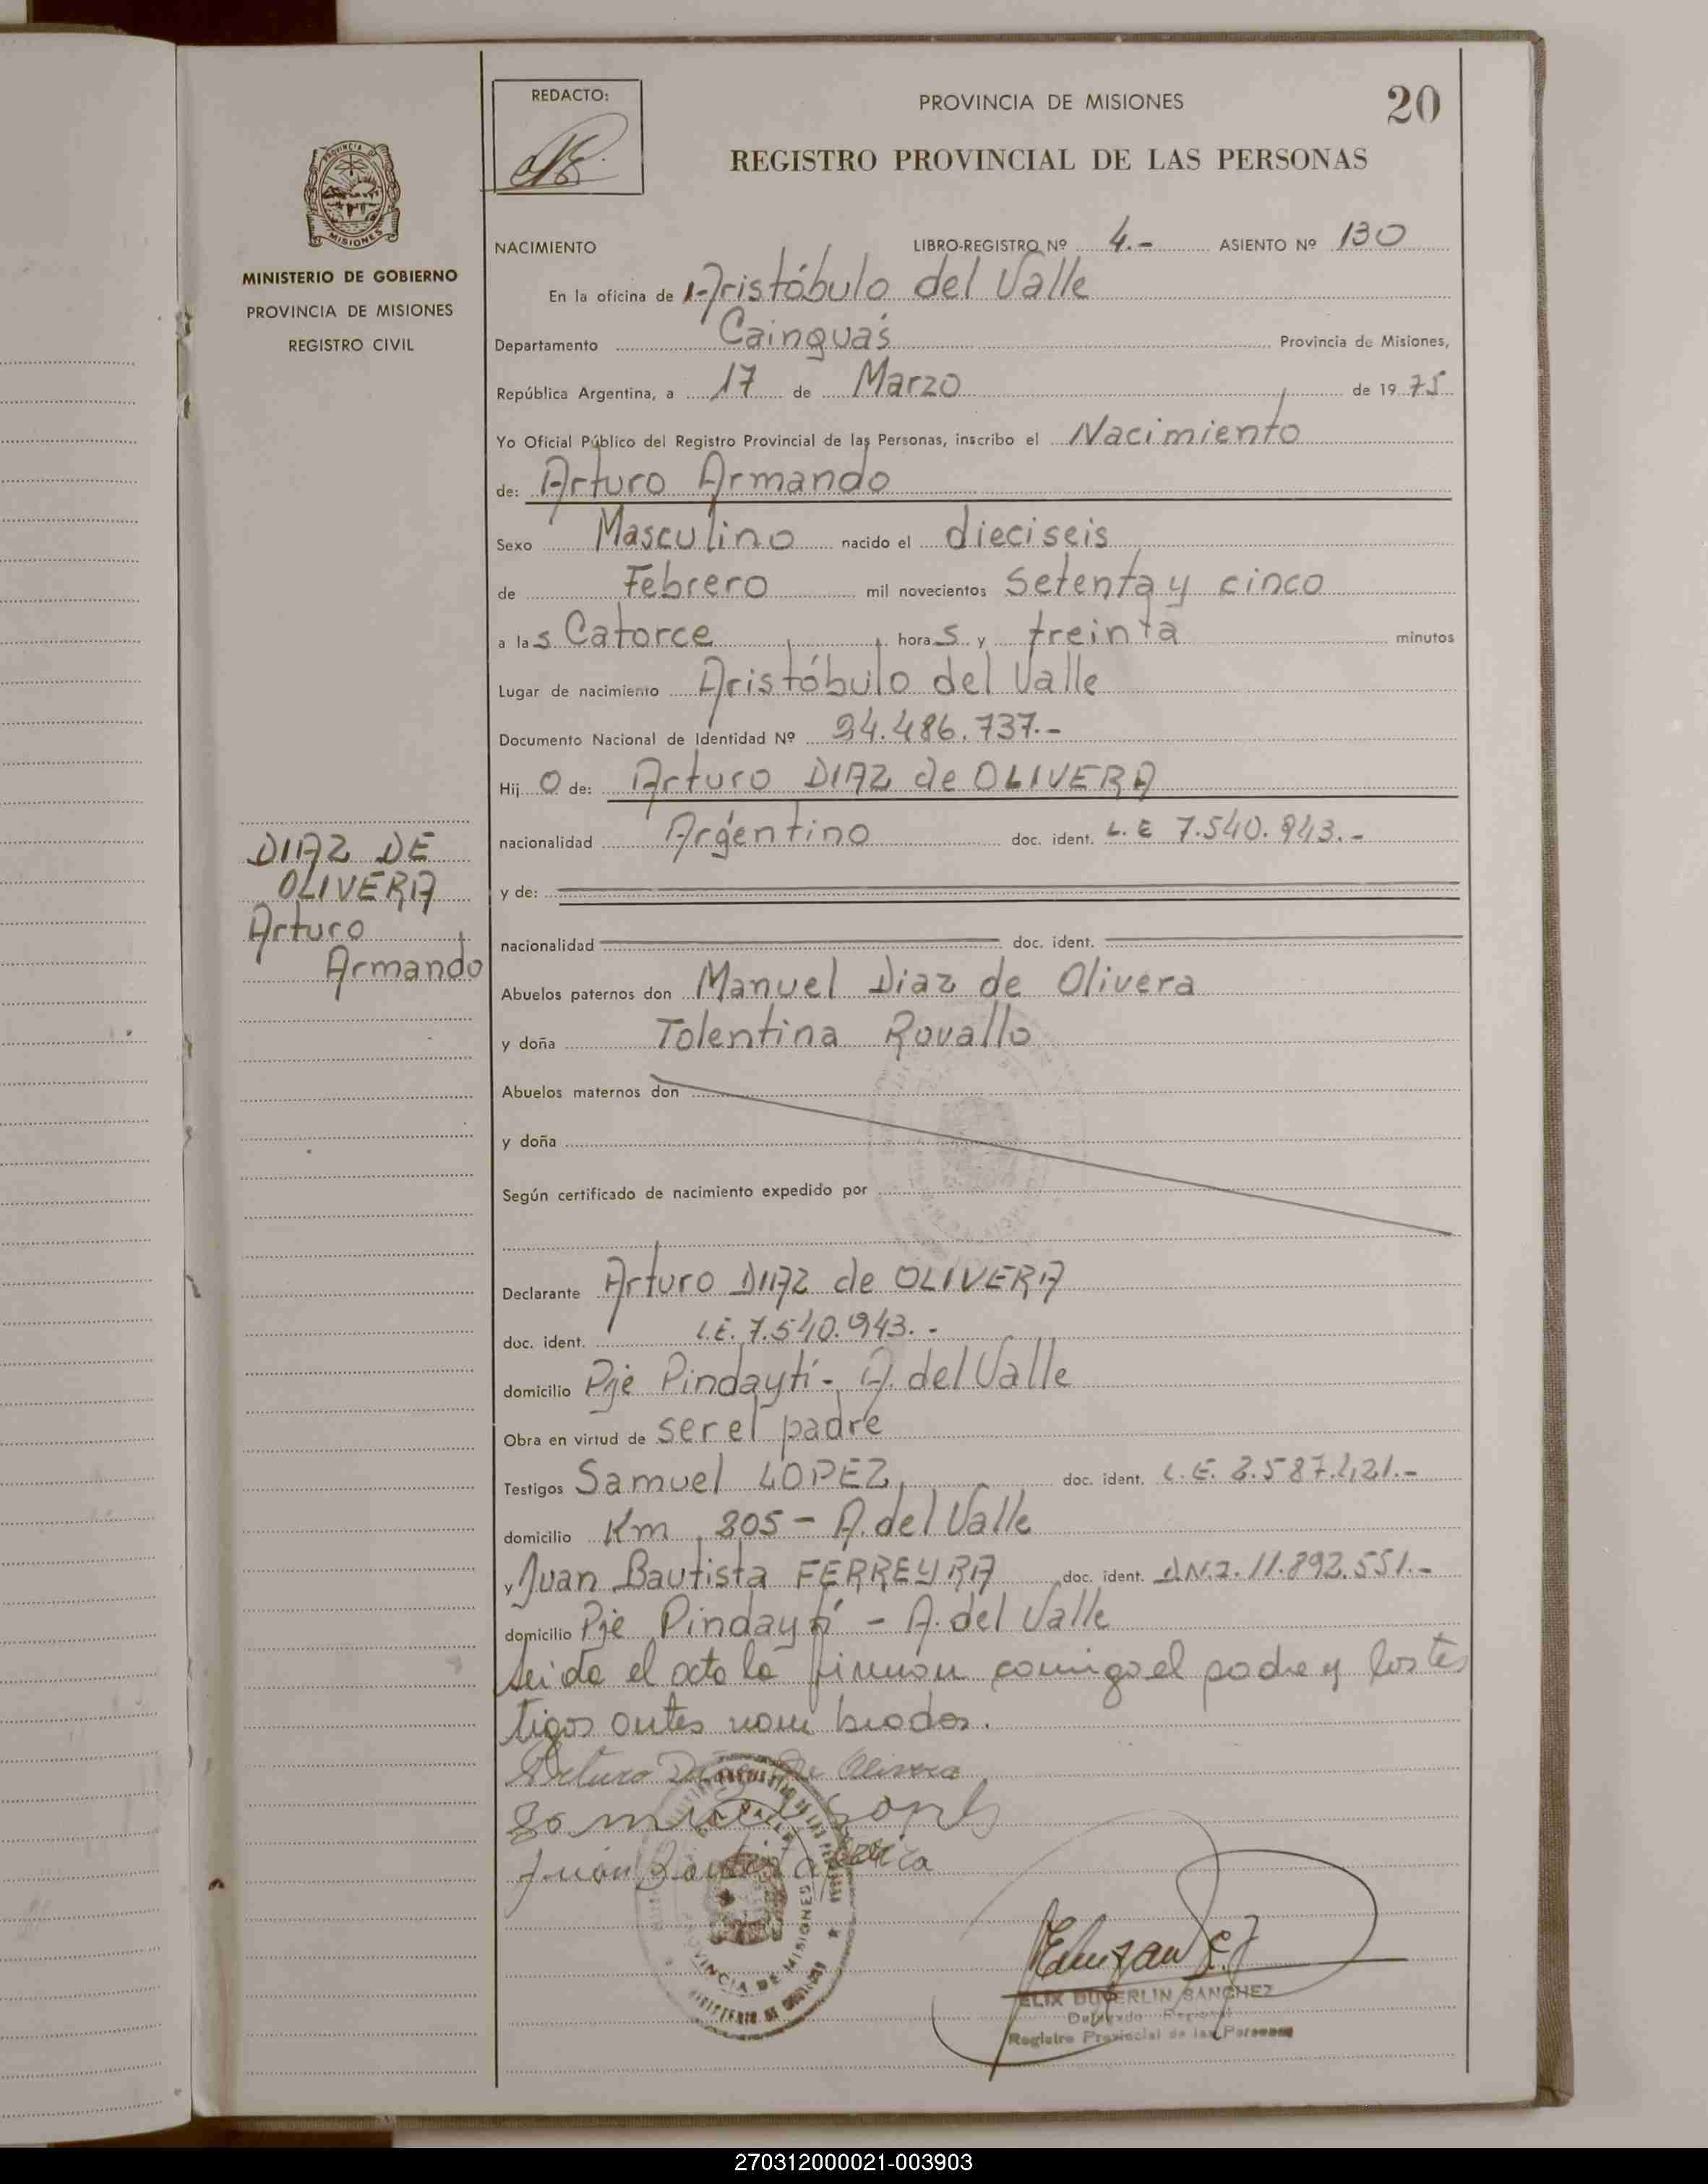 REDACTO:
PROVINCIA DE MISIONES
20
REGISTRO PROVINCIAL DE LAS PERSONAS
PROVINCIA DE
MISIONES
MINISTERIO DE GOBIERNO
PROVINCIA DE MISIONES
REGISTRO CIVIL
NACIMIENTO LIBRO-REGISTRO Nº 4.- ASIENTO Nº 130
En la oficina de Aristóbulo del Valle
Departamento Cainguás Provincia de Misiones,
República Argentina, a 17 de Marzo de 1975
Yo Oficial Público del Registro Provincial de las Personas, inscribo el Nacimiento
de: Arturo Armando
Sexo Masculino nacido el dieciseis
de Febrero mil novecientos setenta y cinco
a las Catorce horas y treinta minutos
Lugar de nacimiento Aristóbulo del Valle
Documento Nacional de Identidad Nº 24.486.737.-
Hijo de: Arturo DIAZ de OLIVERA
nacionalidad Argentino doc. ident. L.E 7.540.943.-
y de:
nacionalidad doc. ident.
DIAZ DE
OLIVERA
Arturo
Armando
Abuelos paternos don Manuel Diaz de Olivera
y doña Tolentina Rovallo
Abuelos maternos don
y doña
Según certificado de nacimiento expedido por
Declarante Arturo DIAZ de OLIVERA
doc. ident. L.E. 7.540.943.-
domicilio Pje Pindaytí - A. del Valle
Obra en virtud de ser el padre
Testigos Samuel LOPEZ, doc. ident. L.E.
domicilio Km 205 - A. del Valle
y Juan Bautista FERREYRA doc. ident. D.N.I. 11.892.551.-
domicilio Pje Pindaytí - A. del Valle
Leida el acta la firman conmigo el padre y los tes
tigos antes nombrados.
Arturo Diaz De Olivera
Juan Bautista
PROVINCIA DE MISIONES
MINISTERIO DE GOBIERNO
ELIX DUVERLIN SANCHEZ
Delegado Regional
Registro Provincial de las Personas
270312000021-003903